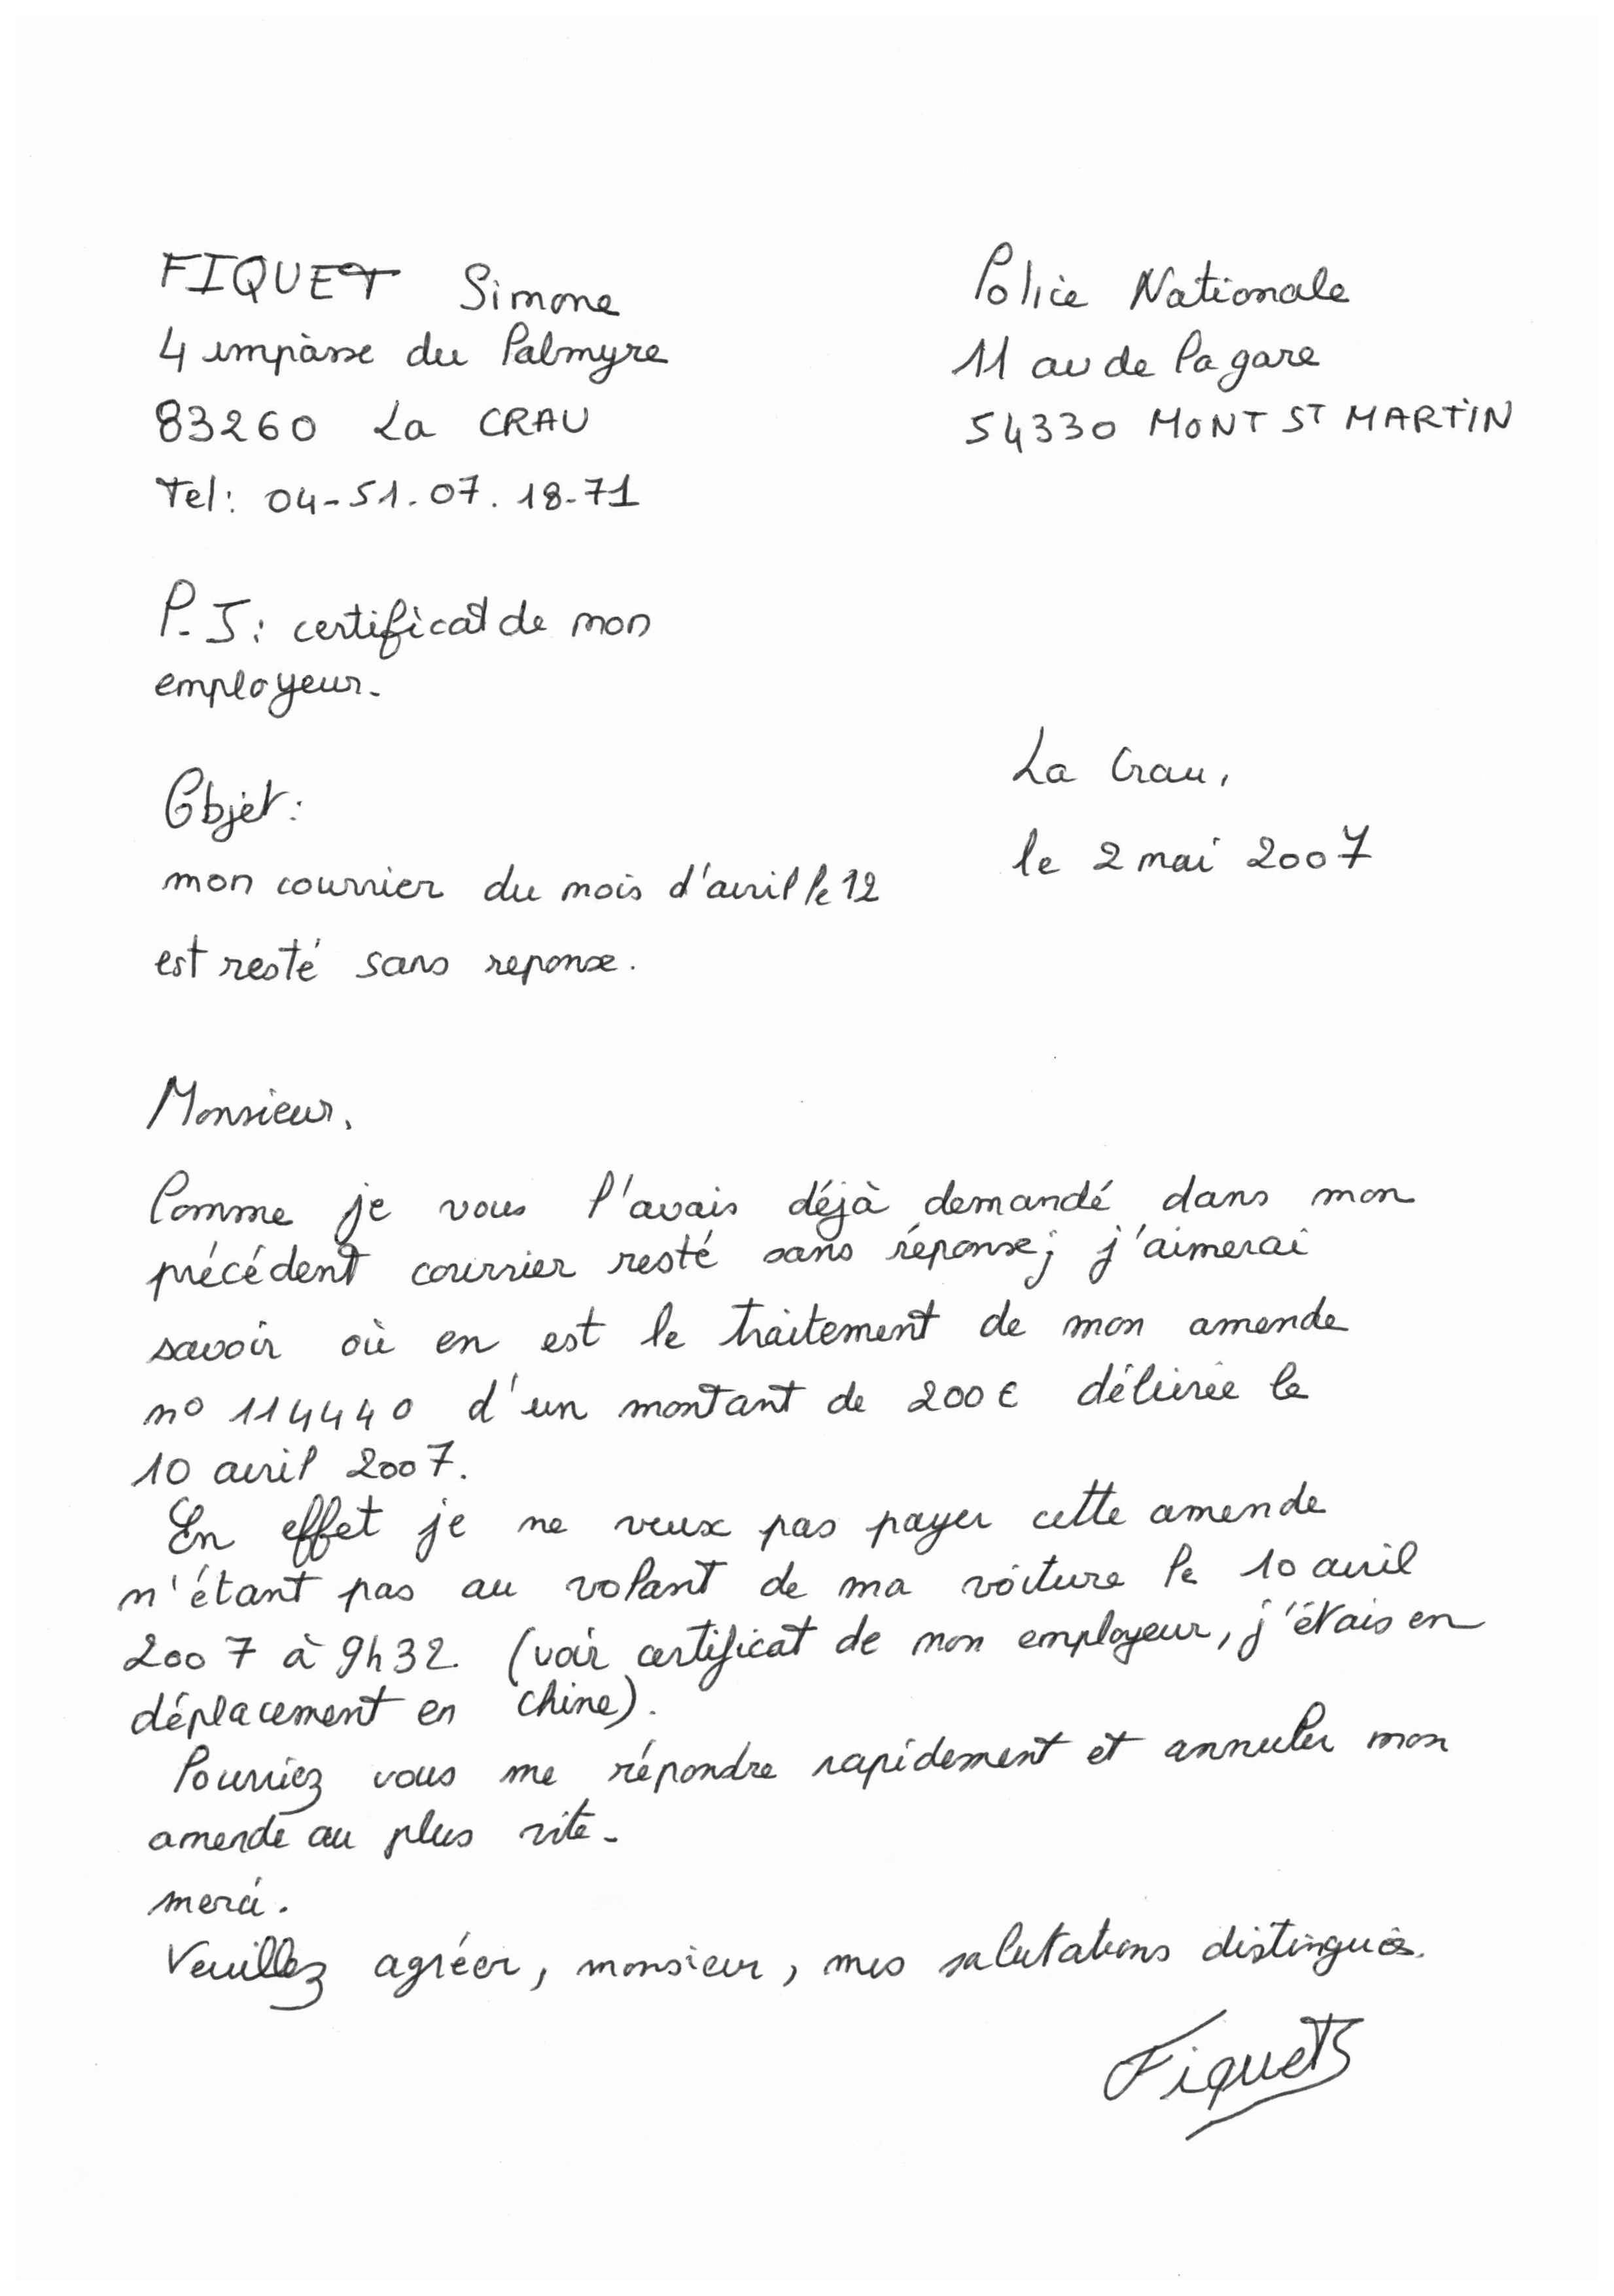 FIQUET Simone
4 impasse du Palmyre
83260 La CRAU
Tel: 04-51.07.18-71
Police Nationale
11 av de la gare
54330 MONT ST MARTIN
P.J: certificat de mon
employeur.
La Crau,
le 2 mai 2007
Objet:
mon courrier du mois d'avril le 12
est resté sans reponse.
Monsieur,
Comme je vous l'avais déjà demandé dans mon
précédent courrier resté sans réponse; j'aimerai
savoir où en est le traitement de mon amende
n° 114440 d'un montant de 200€ délivrée le
10 avril 2007.
En effet je ne veux pas payer cette amende
n'étant pas au volant de ma voiture le 10 avril
2007 à 9h32. (voir certificat de mon employeur, j'étais en
déplacement en chine).
Pourriez vous me répondre rapidement et annuler mon
amende au plus vite.
merci.
Veuillez agréer, monsieur, mes salutations distingués.
Fiquet S